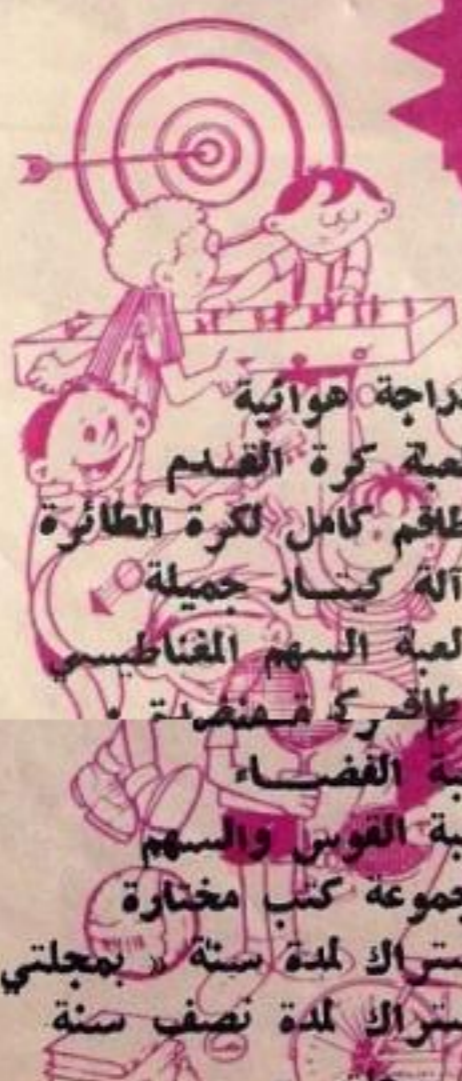 راجة هوائية
عبة كرة القدم
طاقم كامل لكرة الطائرة
آلة كيتار جميلة
لعبة السهم المغناطيسي
بة الفضاء
بة القوس والسهم
جموعة كتب مختارة
ستراك لمدة سنة « بمجلتي
ستراك لمدة نصف سنة